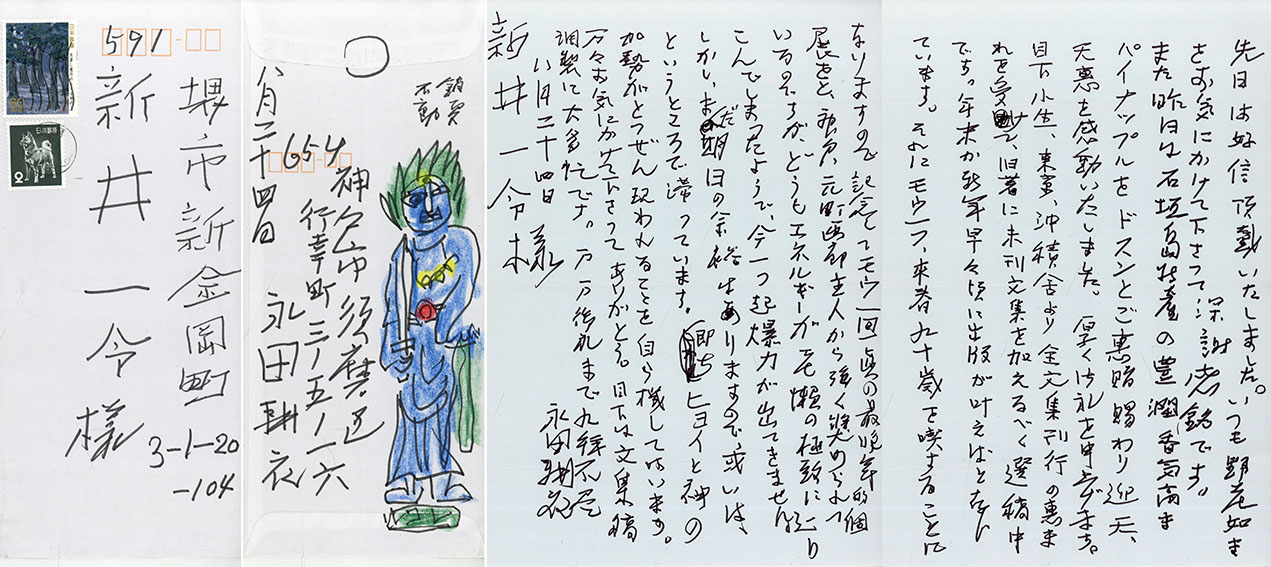 591
堺市新金岡町
3-1-20
-104
新井一令様
不動
八月二十四日
654
神戸市須磨区
行幸町三ノ五ノ一六
永田耕衣
先日は好信頂戴いたしました。いつも野老如き
をお気にかけて下さって深謝 銘です。
また昨日は石垣島特産の豊潤香気満
パイナップルをドスンとご恵贈賜わり迎天、
天恵を感動いたしました。厚く御礼を申上げます。
目下小生、東京、沖積舎より全文集刊行の恵ま
れを受けて、旧著に未刊文集を加えるべく選稿中
です。年末か新年早々頃に出版が叶えばと存じ
ています。それにモウ一つ、来春九十歳を喫することに
なりますので記念してモウ一回真の最晩年的個
展をと、神戸、元町画廊主人から強く奨められて
いるのですが、どうもエネルギーが 懶の極致に
こんでしまったようで、今一つ起爆力が出てきません。
しかしまだ明日の余裕もありますので、或いは、
というところで滞っています。即ちヒョイと神の
加勢がとつぜん現われることを自ら しています。
万々お気にかけて下さってありがとう。目下は文集稿
調製に大多忙です。万々後礼まで 九拝不尽
八月二十四日 永田耕衣
新井一令様